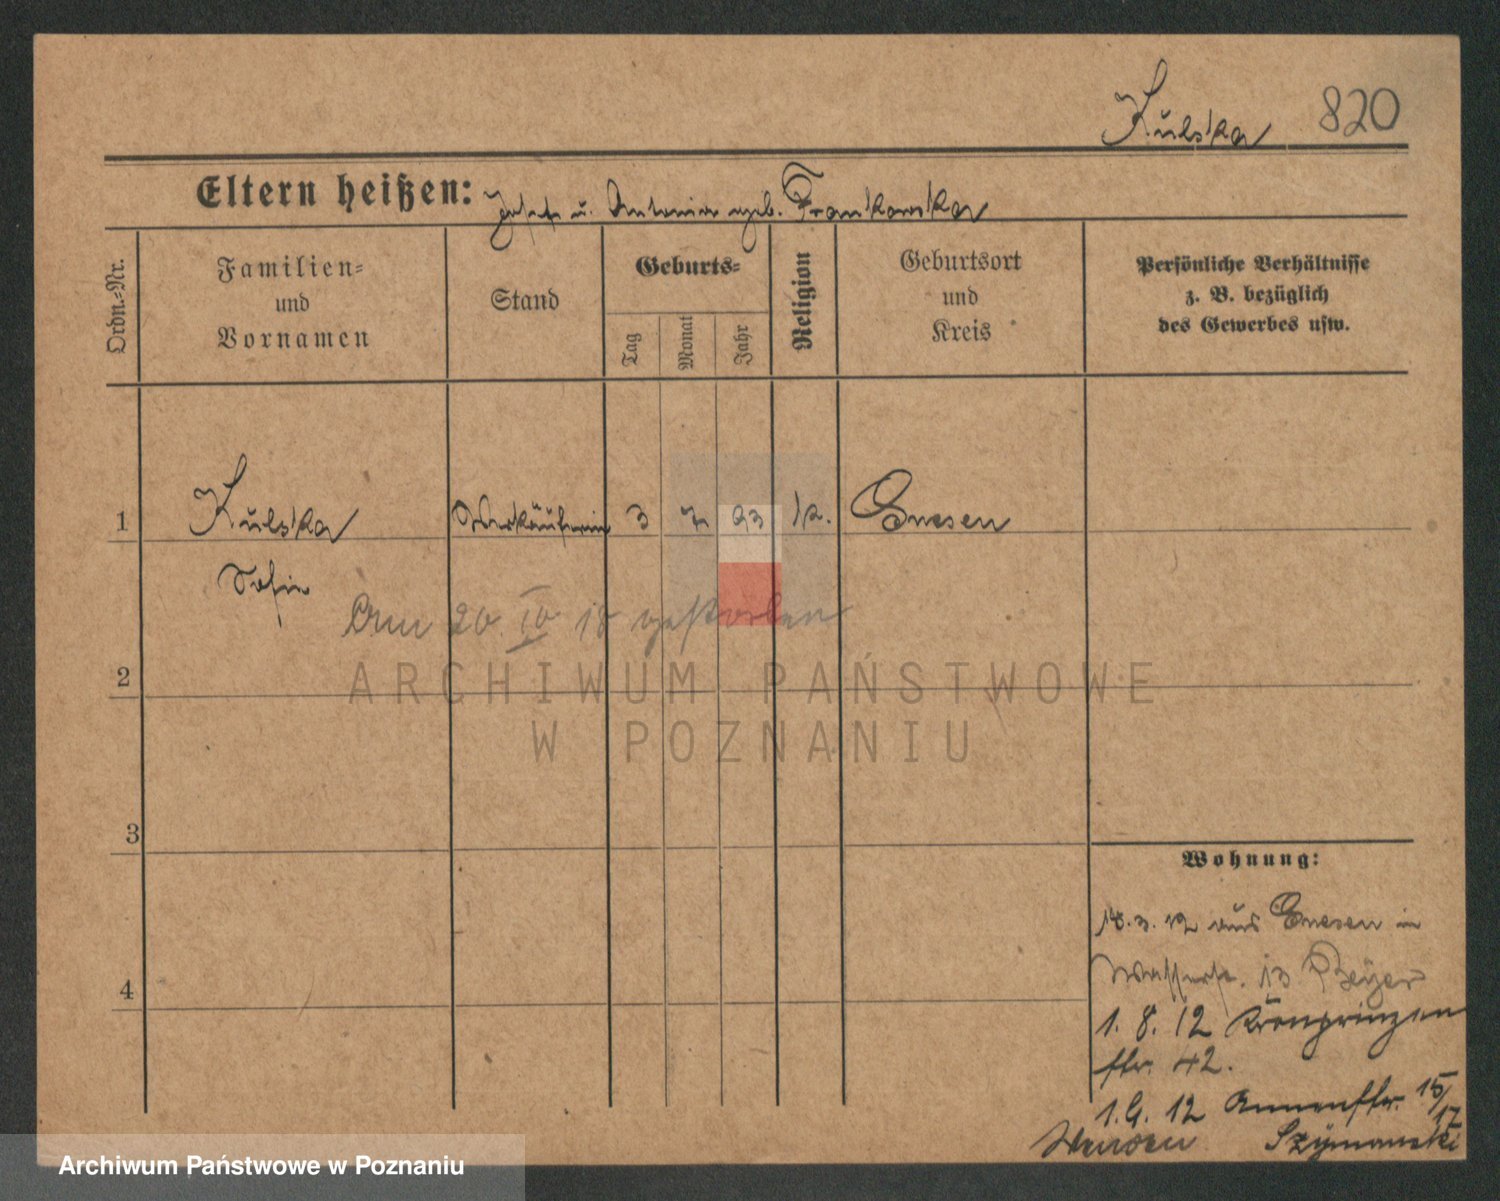 Kulska 820
Eltern heißen: Josef u. Antonie geb. Frankowska
Ordn.-Nr.
Familien-
und
Vornamen
Stand
Geburts-
Tag
Monat
Jahr
Religion
Geburtsort
und
Kreis
Persönliche Verhältnisse
z. B. bezüglich
des Gewerbes usw.
1 Kulska Verkäuferin 3 7 93 k. Gnesen
Sofie
Am 20. IV 18 gestorben
ARCHIWUM PAŃSTWOWE
W POZNANIU
2
3
4
Wohnung:
18.3.12 aus Gnesen in
Wasserstr. 13 Beyer
1. 8. 12 Kronprinzen
str. 42.
12 Annenstr. 15/
17
Szymanski
Archiwum Państwowe w Poznaniu